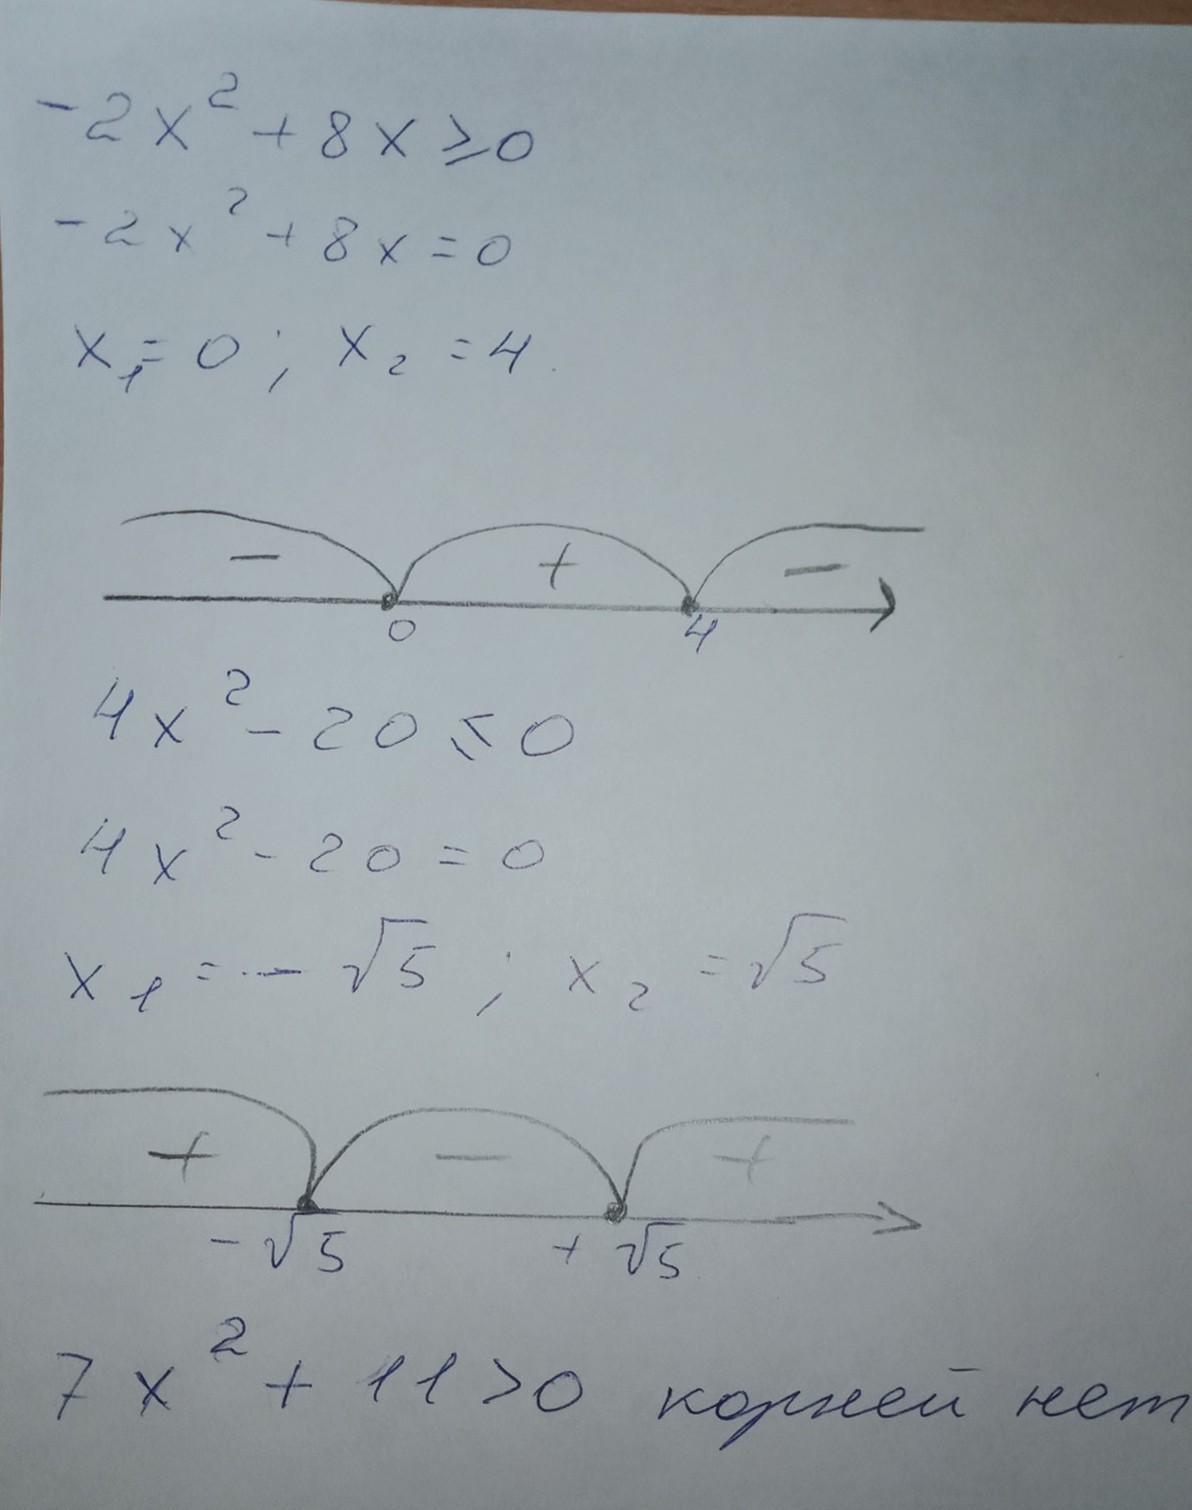 -2x² + 8x ⩾ 0
-2x² + 8x = 0
x₁ = 0 ; x₂ = 4.
- + -
0 4
4x² - 20 ≤ 0
4x² - 20 = 0
x₁ = -√5 ; x₂ = √5
+ - +
-√5 +√5
7x² + 11 > 0 корней нет